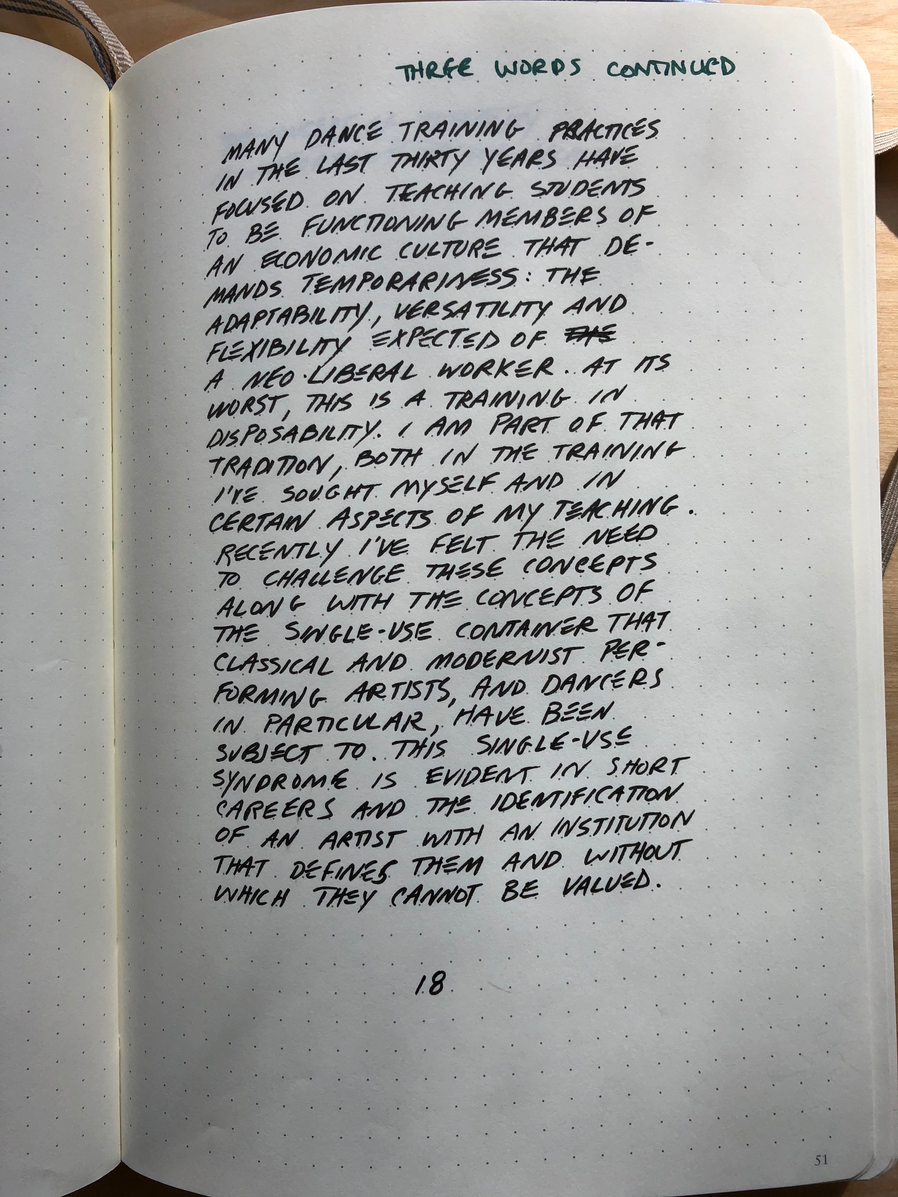 THREE WORDS CONTINUED
MANY DANCE TRAINING PRACTICES
IN THE LAST THIRTY YEARS HAVE
FOCUSED ON TEACHING STUDENTS
TO BE FUNCTIONING MEMBERS OF
AN ECONOMIC CULTURE THAT DE-
MANDS TEMPORARINESS: THE
ADAPTABILITY, VERSATILITY AND
FLEXIBILITY EXPECTED OF THE
A NEO-LIBERAL WORKER. AT ITS
WORST, THIS IS A TRAINING IN
DISPOSABILITY. I AM PART OF THAT
TRADITION, BOTH IN THE TRAINING
I'VE SOUGHT MYSELF AND IN
CERTAIN ASPECTS OF MY TEACHING.
RECENTLY I'VE FELT THE NEED
TO CHALLENGE THESE CONCEPTS
ALONG WITH THE CONCEPTS OF
THE SINGLE-USE CONTAINER THAT
CLASSICAL AND MODERNIST PER-
FORMING ARTISTS, AND DANCERS
IN PARTICULAR, HAVE BEEN
SUBJECT TO. THIS SINGLE-USE
SYNDROME IS EVIDENT IN SHORT
CAREERS AND THE IDENTIFICATION
OF AN ARTIST WITH AN INSTITUTION
THAT DEFINES THEM AND WITHOUT
WHICH THEY CANNOT BE VALUED.
18
51